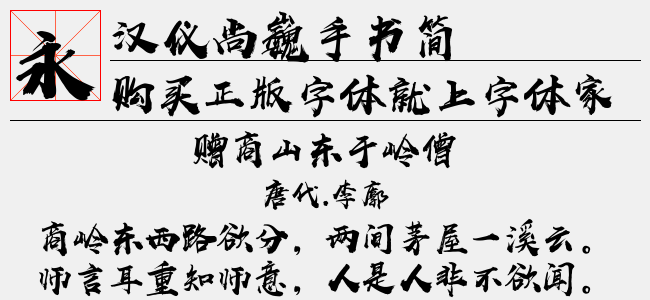 永
汉仪尚巍手书简
购买正版字体就上字体家
赠商山东于岭僧
唐代.李廓
商岭东西路欲分，两间茅屋一溪云。
师言耳重知师意，人是人非不欲闻。